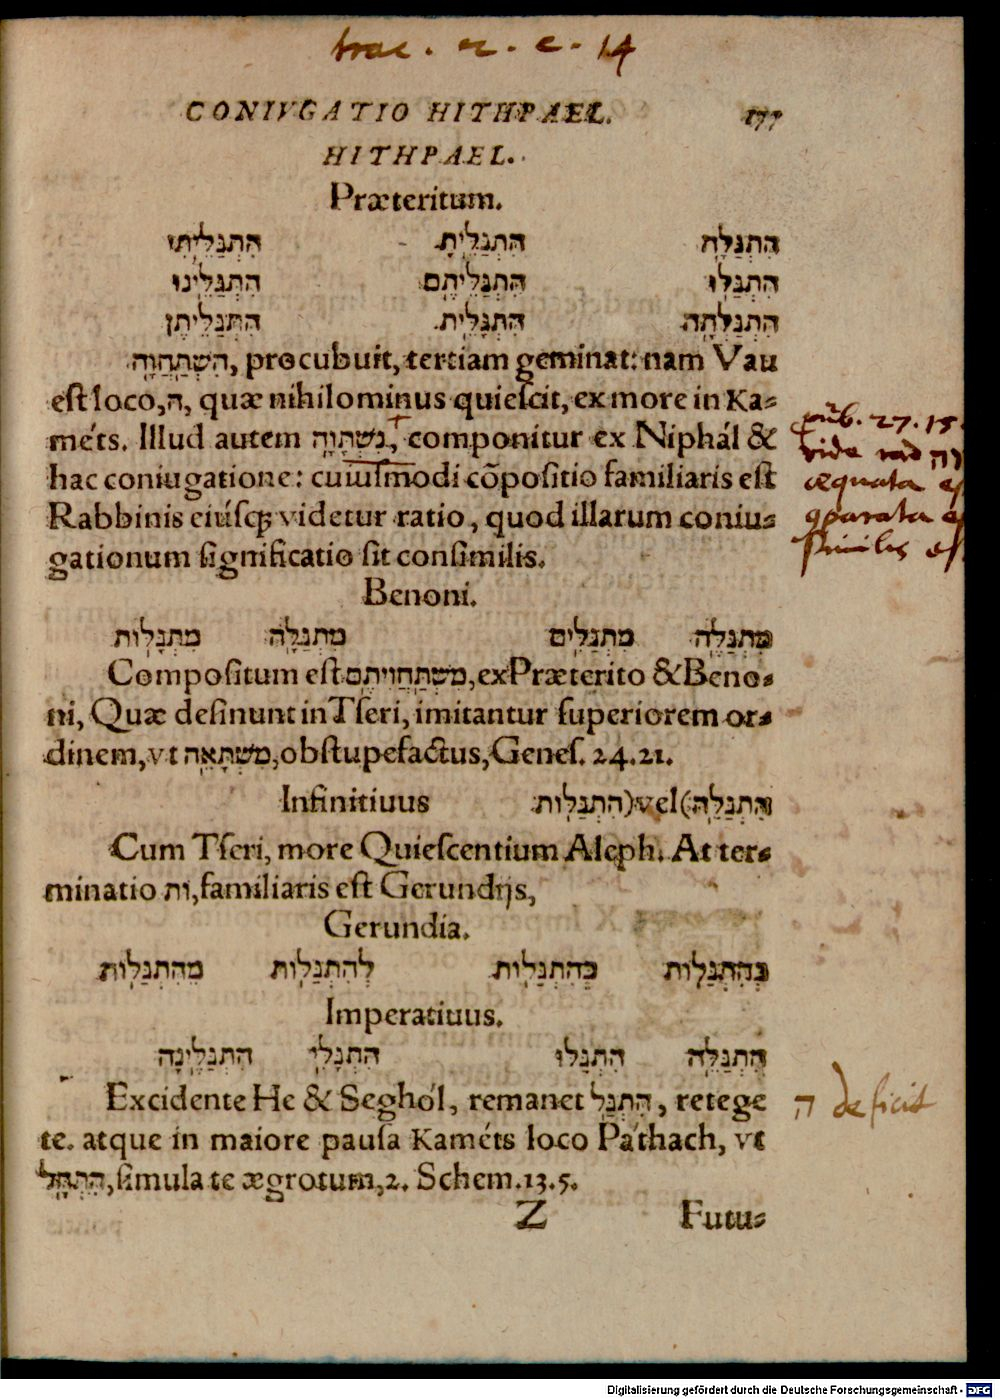 trac. 2. c. 14
CONIVGATIO HITHPAEL. 177
HITHPAEL.
Præteritum.
הִתְגַּלָּה הִתְגַּלֵּיתָ הִתְגַּלֵּיתִי
הִתְגַּלּוּ הִתְגַּלֵּיתֶם הִתְגַּלֵּינוּ
הִתְגַּלְּתָה הִתְגַּלֵּית הִתְגַּלֵּיתֶן
הִשְׁתַּחֲוָה, procubuit, tertiam geminat: nam Vau
est loco, ה, quæ nihilominus quiescit, ex more in Ka-
méts. Illud autem נִשְׁתְּוָה, componitur ex Niphál &
hac coniugatione: cuiusmodi cõpositio familiaris est
Rabbinis eiúsq; videtur ratio, quod illarum coniu-
gationum significatio sit consimilis.
prũb. 27. 15.
vide rad וה
æquata es
parata es
similis es
Benoni.
מִתְגַּלֶּה מִתְגַּלִּים מִתְגַּלָּה מִתְגַּלּוֹת
Compositum est מִשְׁתַּחֲוִיתֶם, ex Præterito & Beno-
ni, Quæ desinunt in Tseri, imitantur superiorem or-
dinem, vt מִשְׁתָּאֵה, obstupefactus, Genes. 24.21.
Infinitiuus הִתְגַּלֵּה (vel) הִתְגַּלּוֹת
Cum Tseri, more Quiescentium Aleph. At ter-
minatio וֹת, familiaris est Gerundijs,
Gerundia.
בְּהִתְגַּלּוֹת כְּהִתְגַּלּוֹת לְהִתְגַּלּוֹת מֵהִתְגַּלּוֹת
Imperatiuus.
הִתְגַּלֵּה הִתְגַּלּוּ הִתְגַּלִּי הִתְגַּלֶּינָה
Excidente He & Seghól, remanet הִתְגַּל, retege
te. atque in maiore pausa Kaméts loco Páthach, vt
הִתְחָל, simula te ægrotum, 2. Schem. 13.5.
ה deficit
Z Futu-
Digitalisierung gefördert durch die Deutsche Forschungsgemeinschaft - DFG